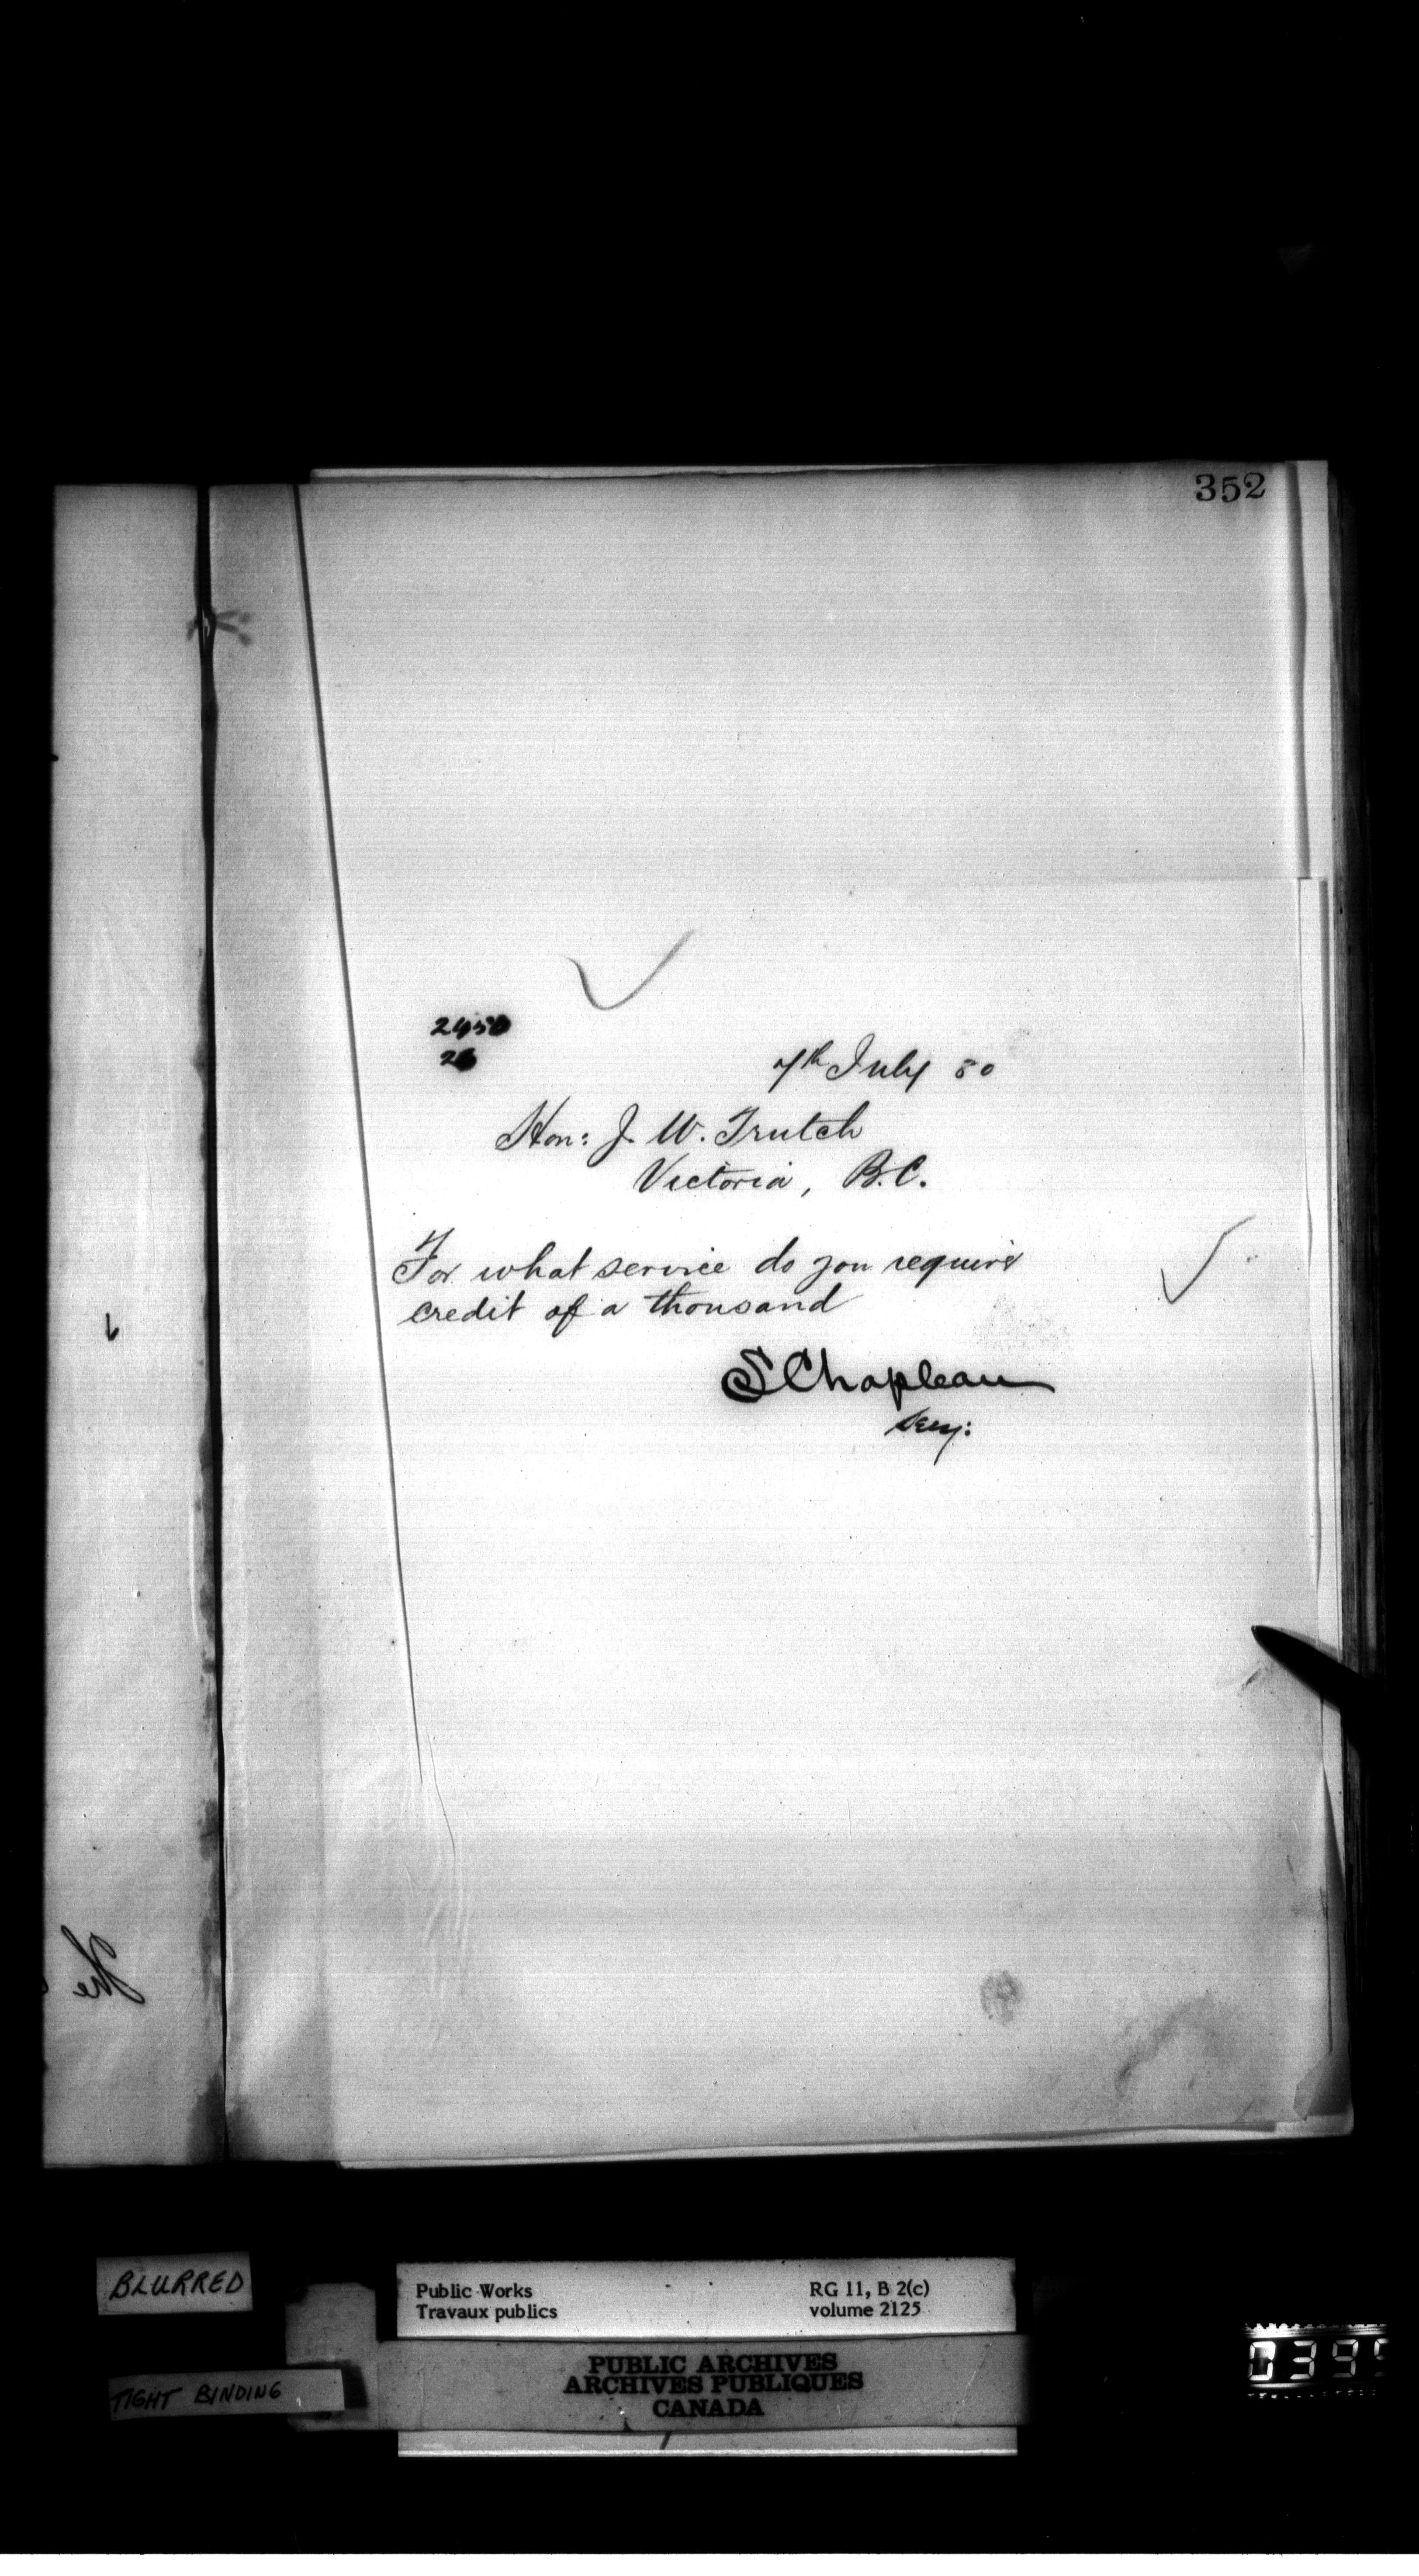 352
2450
7th July 80
Hon: J. W. Trutch
Victoria, B.C.
For what service do you require
credit of a thousand
SChapleau
Secy:
The
BLURRED
TIGHT BINDING
Public Works
Travaux publics
RG 11, B 2(c)
volume 2125
PUBLIC ARCHIVES
ARCHIVES PUBLIQUES
CANADA